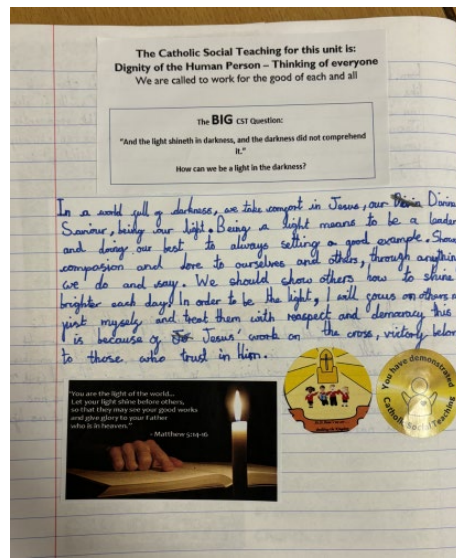 The Catholic Social Teaching for this unit is:
Dignity of the Human Person – Thinking of everyone
We are called to work for the good of each and all
The BIG CST Question:
"And the light shineth in darkness, and the darkness did not comprehend
it."
How can we be a light in the darkness?
In a world full of darkness, we take comfort in Jesus, our Divine
Saviour, being our light. Being a light means to be a leader
and doing our best to always setting a good example. Show
compasion and love to ourselves and others, through anything
we do and say. We should show others how to shine
brighter each day. In order to be the light, I will focus on others
just myself and treat them with respect and This
is because of Jesus' work on the cross, victory
to those who trust in Him.
"You are the light of the world...
Let your light shine before others,
so that they may see your good works
and give glory to your Father
who is in heaven."
- Matthew 5:14-16
You have demonstrated
Catholic Social Teaching